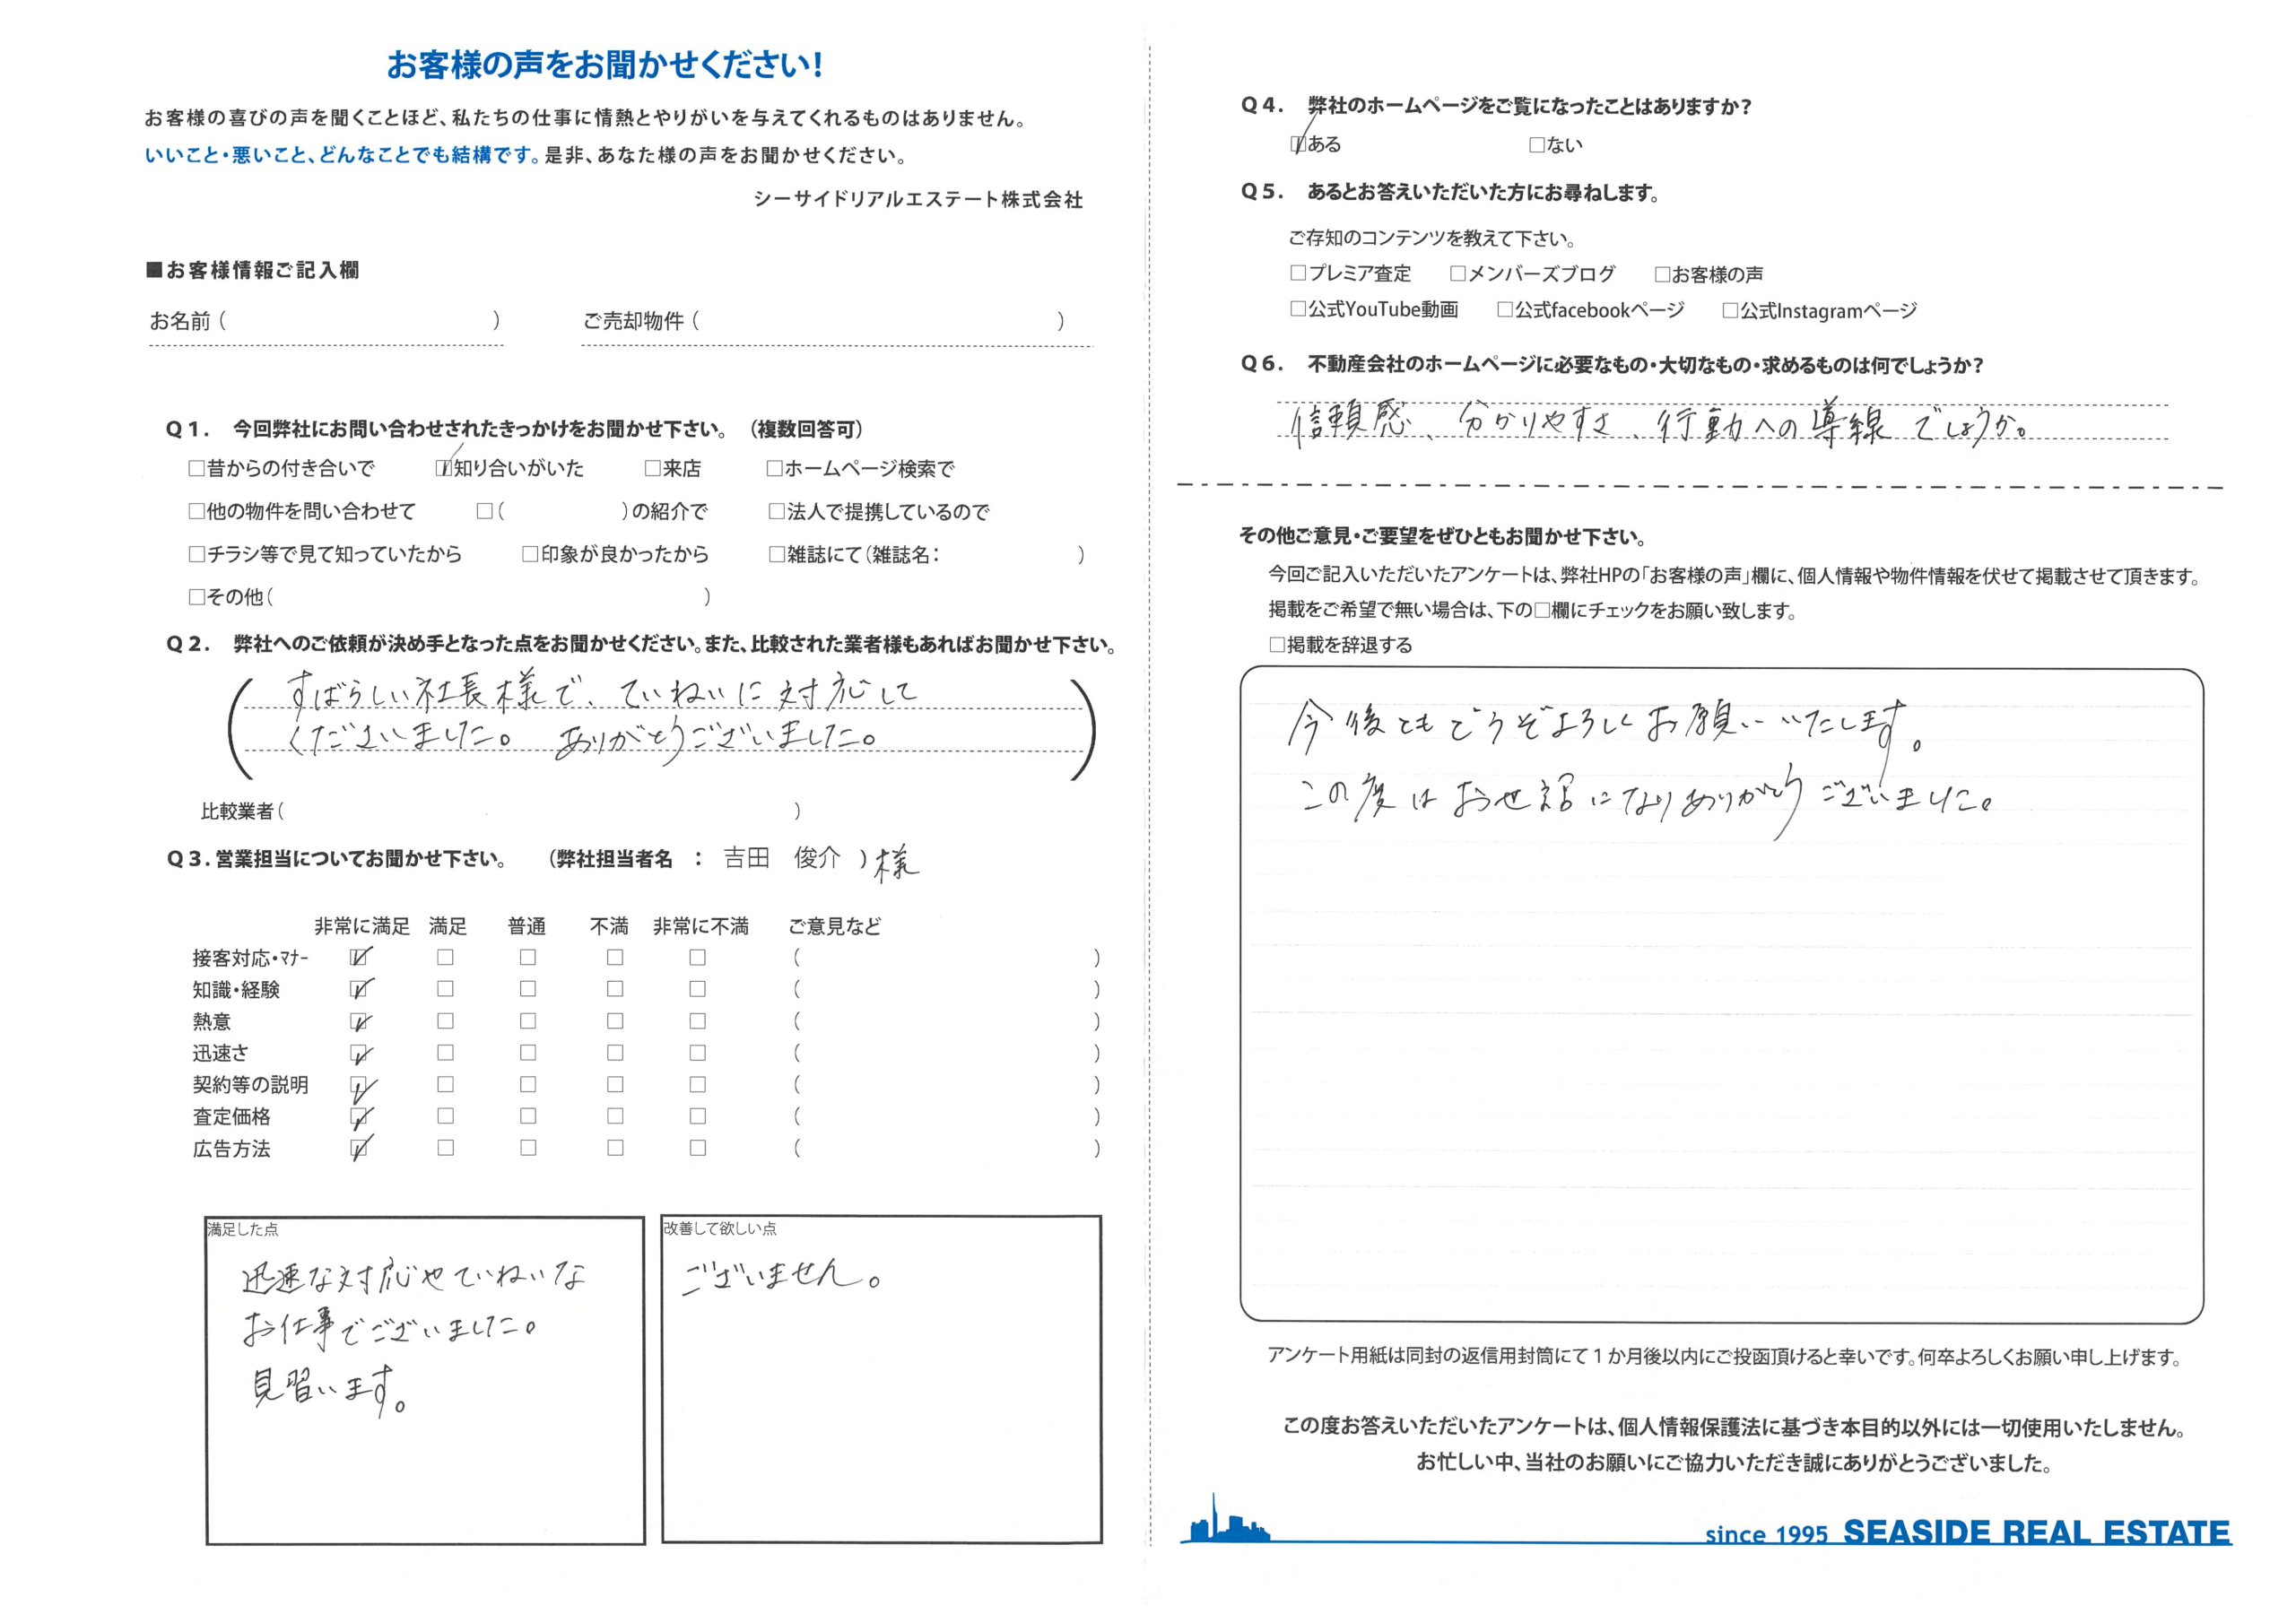 お客様の声をお聞かせください!
お客様の喜びの声を聞くことほど、私たちの仕事に情熱とやりがいを与えてくれるものはありません。
いいこと・悪いこと、どんなことでも結構です。是非、あなた様の声をお聞かせください。
シーサイドリアルエステート株式会社
■お客様情報ご記入欄
お名前( ) ご売却物件( )
Q1. 今回弊社にお問い合わせされたきっかけをお聞かせ下さい。(複数回答可)
□昔からの付き合いで ☑知り合いがいた □来店 □ホームページ検索で
□他の物件を問い合わせて □( )の紹介で □法人で提携しているので
□チラシ等で見て知っていたから □印象が良かったから □雑誌にて(雑誌名: )
□その他( )
Q2. 弊社へのご依頼が決め手となった点をお聞かせください。また、比較された業者様もあればお聞かせ下さい。
すばらしい社長様で、ていねいに対応して
くださいました。 ありがとうございました。
比較業者( )
Q3.営業担当についてお聞かせ下さい。 (弊社担当者名 : 吉田 俊介 )様
非常に満足 満足 普通 不満 非常に不満 ご意見など
接客対応・マナー ☑ □ □ □ □ ( )
知識・経験 ☑ □ □ □ □ ( )
熱意 ☑ □ □ □ □ ( )
迅速さ ☑ □ □ □ □ ( )
契約等の説明 ☑ □ □ □ □ ( )
査定価格 ☑ □ □ □ □ ( )
広告方法 ☑ □ □ □ □ ( )
満足した点
迅速な対応やていねいな
お仕事でございました。
見習います。
改善して欲しい点
ございません。
Q4. 弊社のホームページをご覧になったことはありますか?
☑ある □ない
Q5. あるとお答えいただいた方にお尋ねします。
ご存知のコンテンツを教えて下さい。
□プレミア査定 □メンバーズブログ □お客様の声
□公式YouTube動画 □公式facebookページ □公式Instagramページ
Q6. 不動産会社のホームページに必要なもの・大切なもの・求めるものは何でしょうか?
信頼感、分かりやすさ、行動への導線でしょうか。
その他ご意見・ご要望をぜひともお聞かせ下さい。
今回ご記入いただいたアンケートは、弊社HPの「お客様の声」欄に、個人情報や物件情報を伏せて掲載させて頂きます。
掲載をご希望で無い場合は、下の□欄にチェックをお願い致します。
□掲載を辞退する
今後ともどうぞよろしくお願いいたします。
この度はお世話になりありがとうございました。
アンケート用紙は同封の返信用封筒にて1か月後以内にご投函頂けると幸いです。何卒よろしくお願い申し上げます。
この度お答えいただいたアンケートは、個人情報保護法に基づき本目的以外には一切使用いたしません。
お忙しい中、当社のお願いにご協力いただき誠にありがとうございました。
since 1995 SEASIDE REAL ESTATE